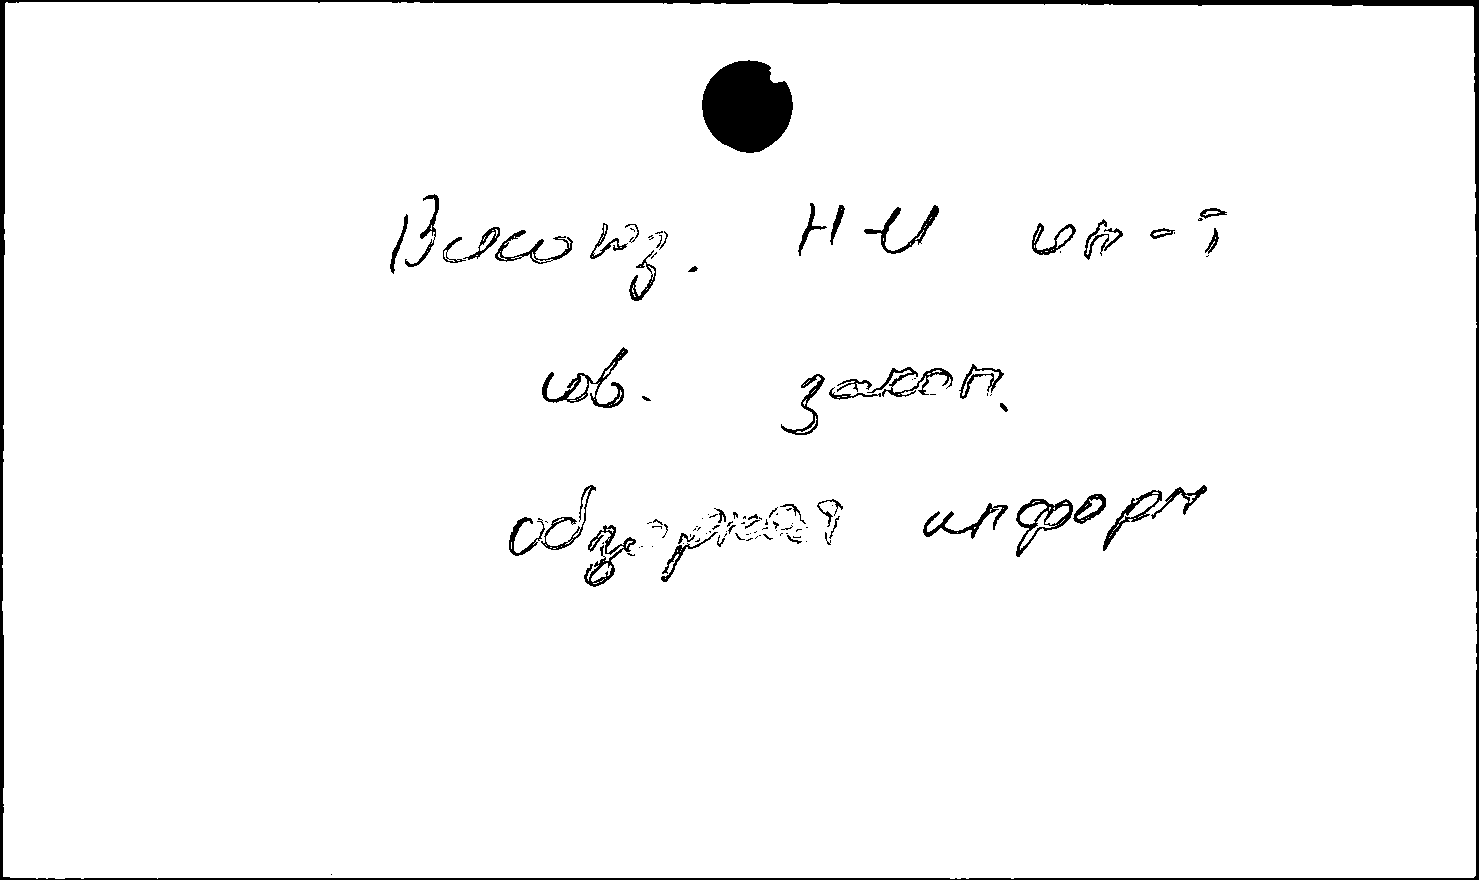 Всесоюз. Н-И ин-т
сов. закон.
обзорная информ